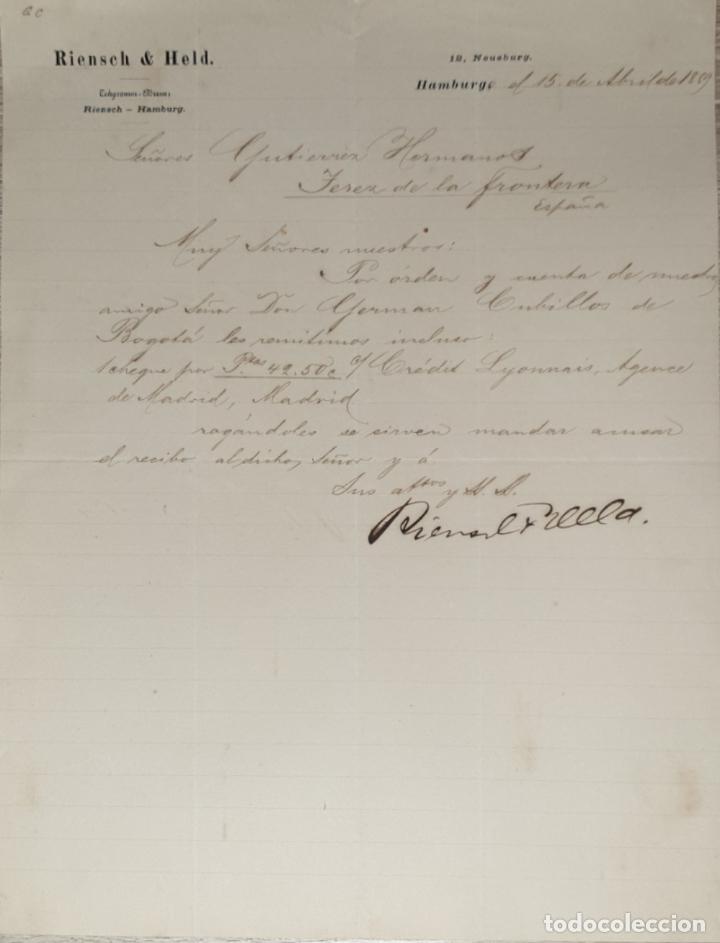 Riensch & Held.
Telegramm-Adresse:
Riensch – Hamburg.
19, Neueburg.
Hamburg, el 15 de Abril de 1889
Señores Gutierrez Hermanos
Jerez de la Frontera
España
Muy Señores nuestros:
Por órden y cuenta de nuestro
amigo Señor Don German Cubillos de
Bogotá les remitimos incluso:
1 cheque por Ptas 42.50c c/ Crédit Lyonnais, Agence
de Madrid, Madrid
rogándoles se sirven mandar acusar
el recibo al dicho Señor y á
Sus attos y S. S.
Riensch & Held.
todocoleccion